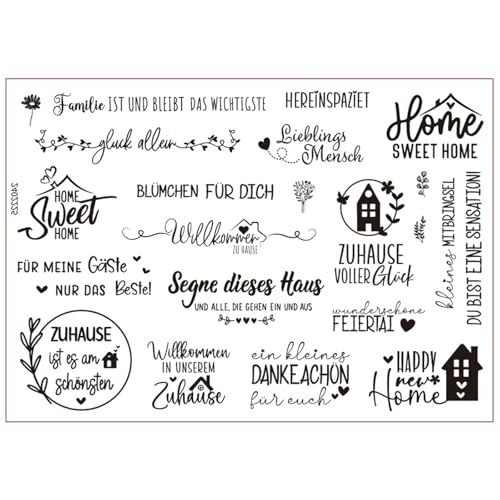 Familie IST UND BLEIBT DAS WICHTIGSTE
HEREINSPAZIERT
Home
SWEET HOME
glück allein
Lieblings
Mensch
HOME
Sweet
HOME
BLÜMCHEN FÜR DICH
Willkommen
ZU HAUSE
ZUHAUSE
VOLLER Glück
kleines MITBRINGSEL
DU BIST EINE SENSATION!
FÜR MEINE GÄSTE
NUR DAS Beste!
Segne dieses Haus
UND ALLE, DIE GEHEN EIN UND AUS
wunderschöne
FEIERTAI
ZUHAUSE
ist es am
schönsten
Willkommen
IN UNSEREM
Zuhause
ein kleines
DANKEACHÖN
für euch
HAPPY
new
Home